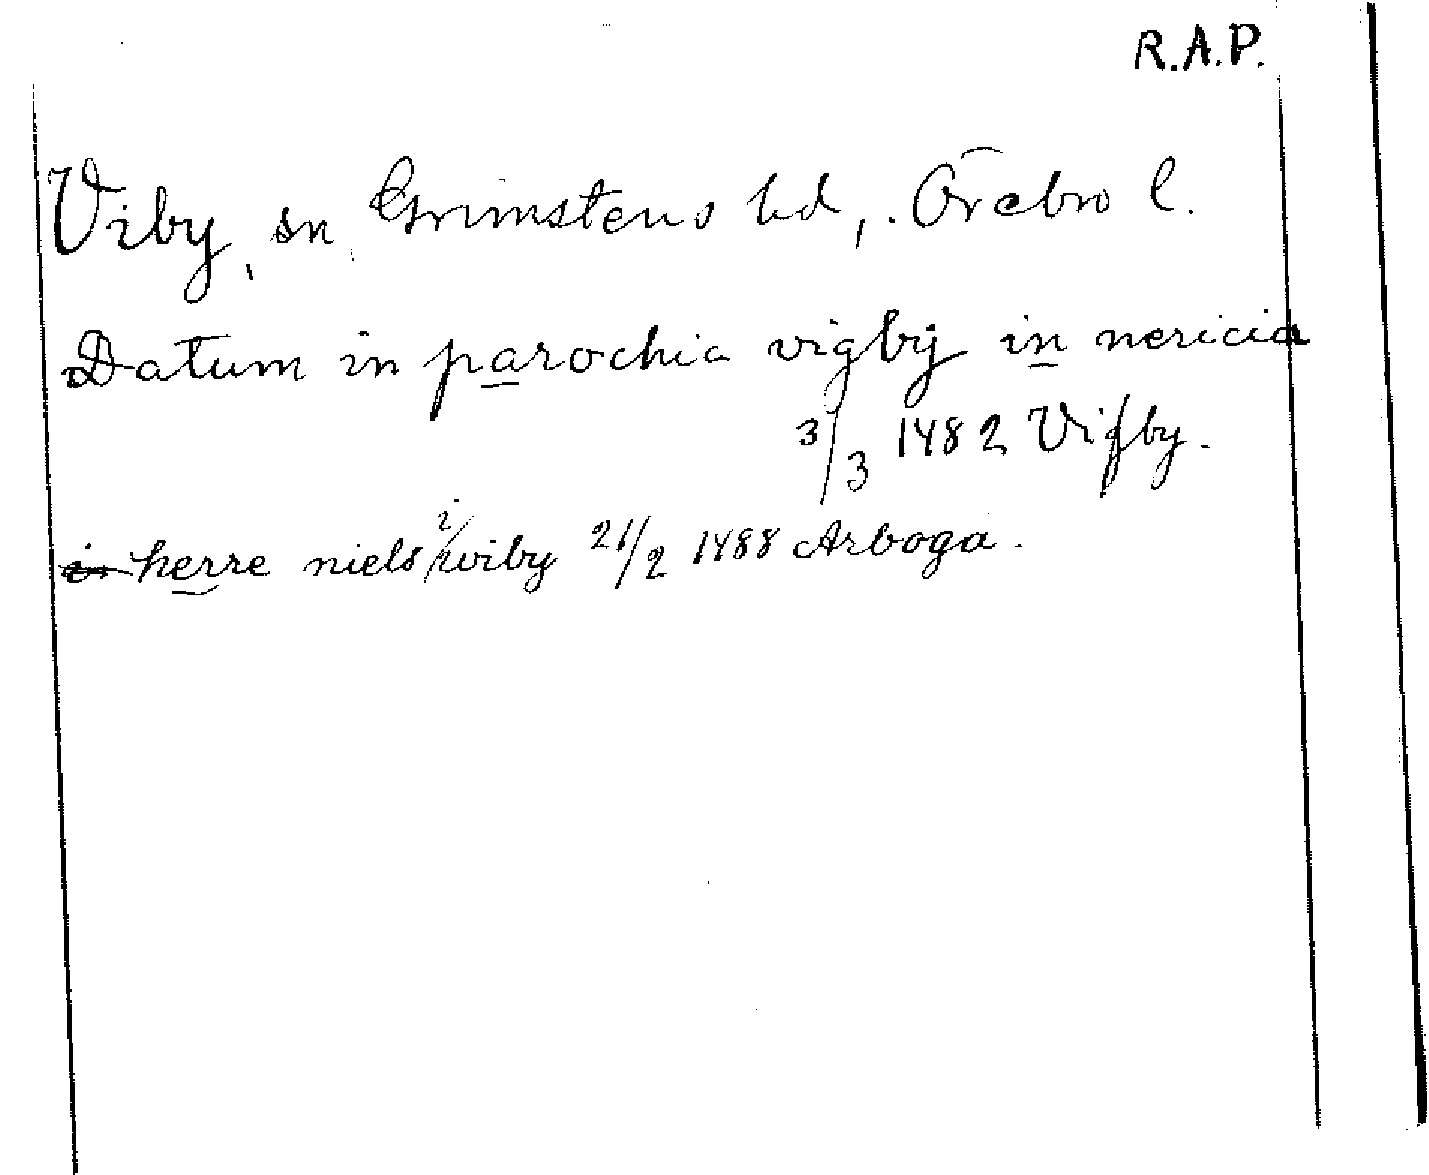 R.A.P.
Viby, sn, Grimstens hd, Örebro l.
Datum in parochia vigbÿ in nericia
3/3 1482 Vigby.
in herre niels i wiby 21/2 1488 Arboga.